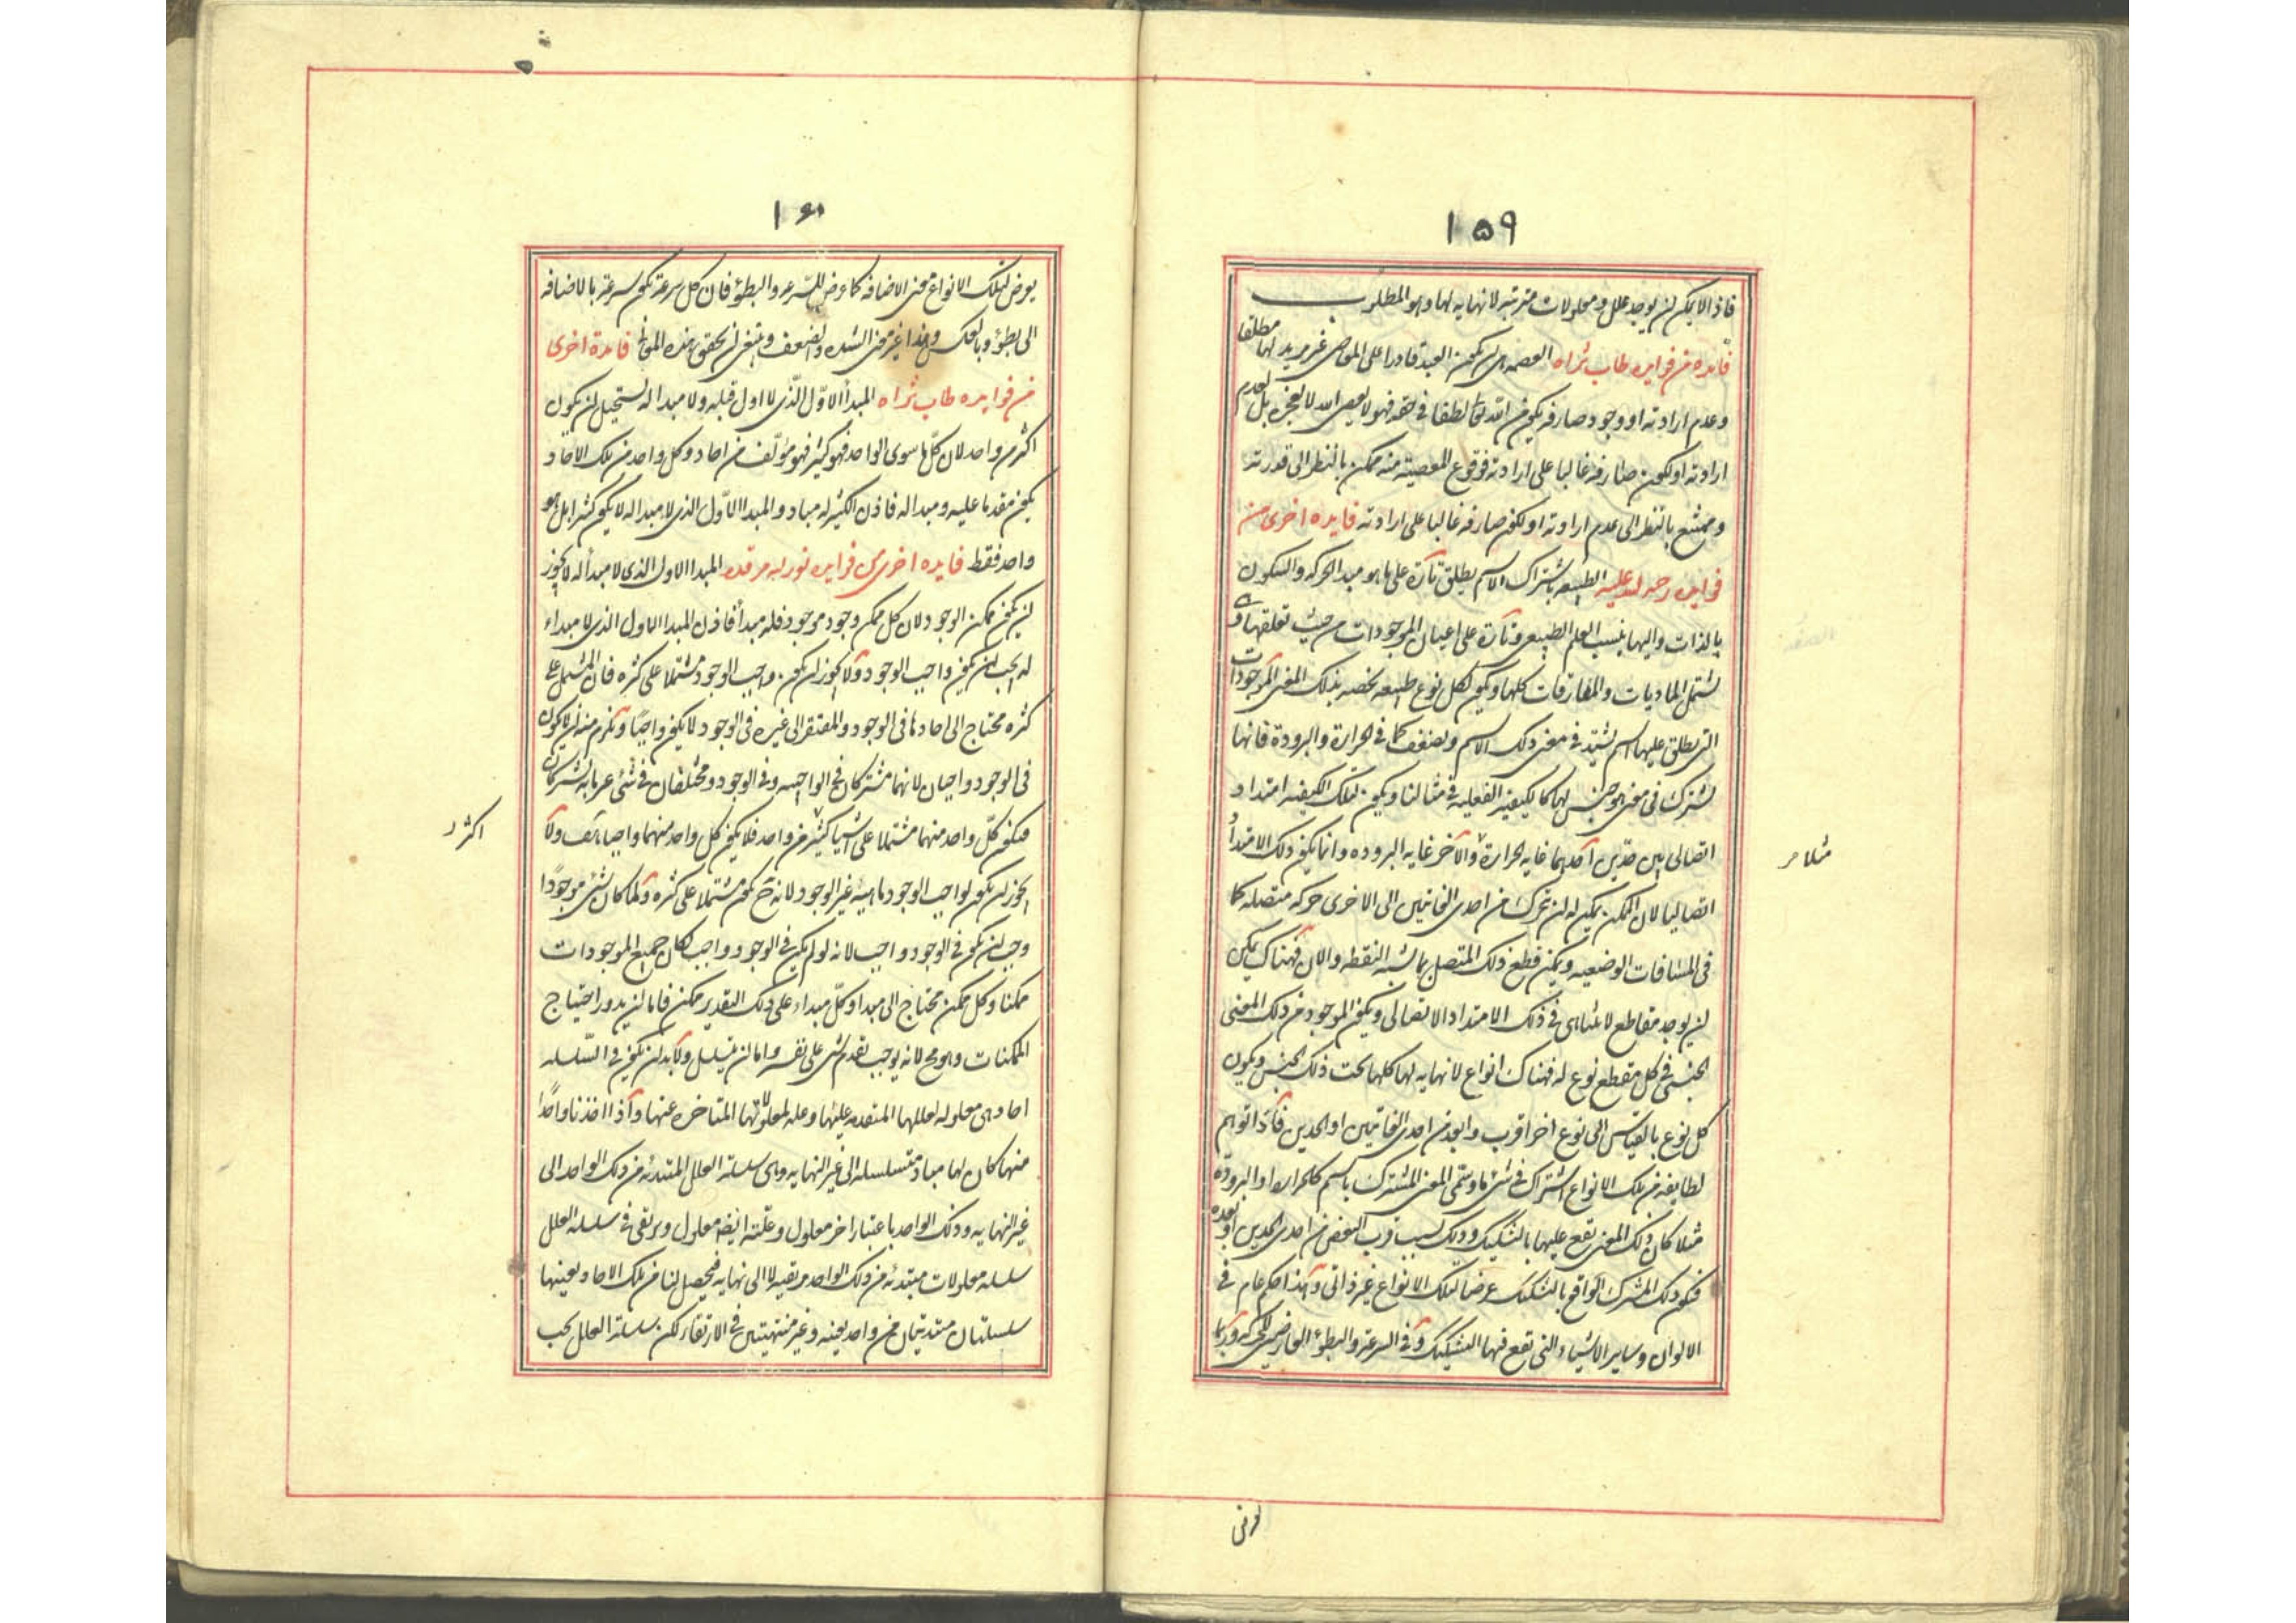 ١٥٩
فاذالايمكن ان يوجد علل ومعلولات مترتبه لا نهايه لها وهو المطلوب
فايده من فوايده طاب ثراه العصمه هى ان يكون العبد قادرا على المعاصى غير مريد لها مطلقا
وعدم ارادته او وجود صارفه يكون من الله تعالى لطفا فى حقه فهو لا يعصى الله لا لعجزه بل لعدم
ارادته او لكون صارفه غالبا على ارادته فوقوع المعصيته منه ممكن بالنظر الى قدرته
وممتنع بالنظر الى عدم ارادته او لكون صارفه غالبا على ارادته فايده اخرى من
فوايده رحمه الله عليه الطبيعه باشتراك الاسم يطلق تارة على ما هو مبدا الحركه والسكون
بالذات واليها ينسب العلم الطبيعى وتارة على اعيان الموجودات من حيث تعلقها و
يشتمل الماديات والمفارقات كلها ويكون لكل نوع طبيعه تخصه بذلك المعنى الموجودات
التى يطلق عليها اسم يشتد فى معنى ذلك الاسم ويضعف كما فى الحرارة والبرودة فانها
يشترك فى معنى هو جنس لها كما لكيفيه الفعليه فى مثالنا ويكون لتلك الكيفيه امتداد
اتصالى بين حدّين احدهما غايه الحرارة والآخر غايه البروده وانما يكون ذلك الامتداد
مثلا
اتصاليا لان الممكن يمكن له ان يتحرك من احدى الغايتين الى الاخرى حركه متصله كما
فى المسافات الوضعيه ويمكن قطع ذلك المتصل بما يشبه النقطه والان فهناك يمكن
ان يوجد مقاطع لا يتناهى فى ذلك الامتداد الاتصالى ويكون الموجود من ذلك المعنى
الجنسى فى كل مقطع نوع له فهناك انواع لا نهايه لها كلها تحت ذلك الجنس ويكون
كل نوع بالقياس الى نوع اخر اقرب وابعد من احدى الغايتين او الحدين فاذا توهم
لطايفه من تلك الانواع اشتراك فى شئ ما وسمى المعنى المشترك باسم كالحراره او البروده
مثلا كان ذلك المعنى يقع عليها بالتشكيك وذلك بسبب قرب البعض من احدى الحدين او بعده
فيكون ذلك المشترك الواقع بالتشكيك عرضا لتلك الانواع غير ذاتى وهذا حكم عام فى
الالوان وساير الاشياء التى تقع فيها التشكيك وفى السرعة والبطؤ العارضين للحركه وربما
١٦٠
يعرض لتلك الانواع معنى الاضافه كما عرض للسّرعه والبطؤ فان كل سرعة يكون سرعة بالاضافه
الى بطؤ وبالعكس وهذا غير معنى الشده والضعف وينبغى ان يحقق هذه المعانى فايدة اخرى
من فوايده طاب ثراه المبدأ الاوّل الّذى لا اول قبله ولا مبدا له يستحيل ان يكون
اكثر من واحد لان كلّ ما سوى الواحد فهو كثير فهو مؤلّف من احاد وكل واحد من تلك الاحاد
يكون مقدما عليه ومبدا له فاذن الكثير له مباد والمبدا الاوّل الذى لا مبدا له لا يكون كثيرا بل هو
واحد فقط فايده اخرى من فوايده نور الله مرقده المبدا الاول الذى لا مبدأ له لا يجوز
ان يكون ممكن الوجود لان كل ممكن وجود موجود فله مبدأ فاذن المبدا الاول الذى لا مبداء
له يجب ان يكون واجب الوجود ولا يجوز ان يكون واجب الوجود مشتملا على كثره فان المشتمل على
كثره محتاج الى احادها فى الوجود والمفتقر الى غيره فى الوجود لا يكون واجبًا ويلزم منه ان لا يكون
فى الوجود واجبان لانهما مشتركان فى الواجبيه وفى الوجود ومختلفان فى شئ غير ما به يشتركان
فيكون كلّ واحد منهما مشتملا على اشيا كثيره من واحد فلا يكون كل واحد منهما واجبا هف ولا
اكثر
يجوز ان يكون لواجب الوجود ماهيه غير الوجود لانه ح يكون مشتملا على كثره ولما كان شئ موجودًا
وجب ان يكون فى الوجود واجب لانه لو لم يكن فى الوجود واجب لكان جميع الموجودات
ممكنا وكل ممكن محتاج الى مبدا وكلّ مبداء على ذلك التقدير ممكن فاما ان يدور احتياج
الممكنات وهو مح لانه يوجب تقدم شى على نفسه واما ان يتسلسل ولابد ان يكون فى السّلسله
احاد هى معلوله لعللها المتقدمه عليها وعله لمعلولاتها المتاخره عنها واذا اخذنا واحدًا
منها كان لها مباد متسلسله الى غير النهايه وهى سلسلة العلل المبتدئه من ذلك الواحد الى
غير النهايه وذلك الواحد باعتبار اخر معلول وعلّته ايضا معلول ويرتقى فى سلسله العلل
سلسله معلولات مبتدئه من ذلك الواحد مرتقيه لا الى نهايه فيحصل لنا من تلك الاحاد بعينها
سلسلتان مبتدئتان من واحد بعينه وغير منتهيتين فى الارتقاء لكن سلسلة العلل يجب
يعرض